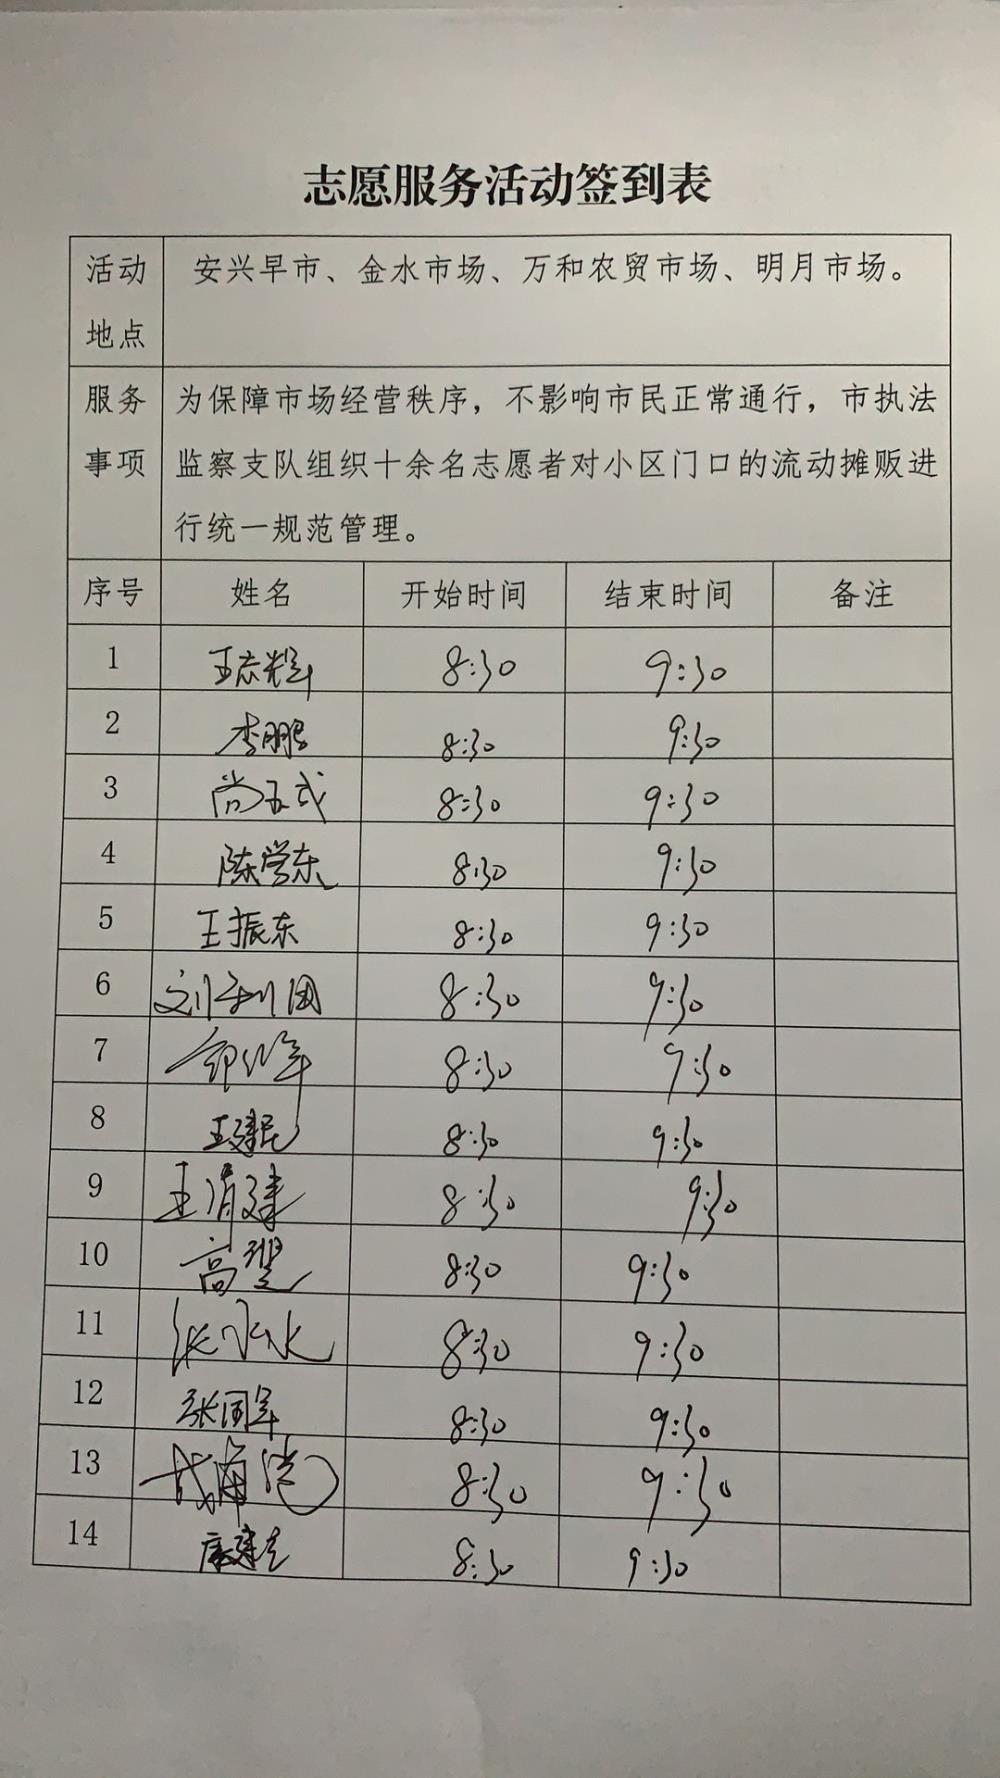 志愿服务活动签到表
活动地点 安兴早市、金水市场、万和农贸市场、明月市场。
服务事项 为保障市场经营秩序，不影响市民正常通行，市执法
监察支队组织十余名志愿者对小区门口的流动摊贩进
行统一规范管理。
序号 姓名 开始时间 结束时间 备注
1 王志辉 8:30 9:30
2 李鹏 8:30 9:30
3 尚玉武 8:30 9:30
4 陈学东 8:30 9:30
5 王振东 8:30 9:30
6 刘利国 8:30 9:30
7 8:30 9:30
8 王建民 8:30 9:30
9 王清建 8:30 9:30
10 高翌 8:30 9:30
11 张永水 8:30 9:30
12 张国军 8:30 9:30
13 8:30 9:30
14 康建生 8:30 9:30